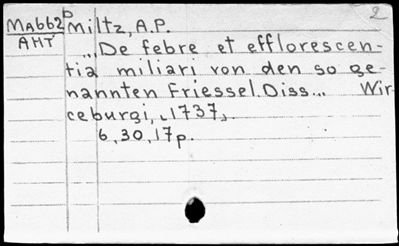 2
MAbb2ᴰ Miltz, A.P.
AHT ...De febre et efflorescen-
tia miliari von den so ge-
nannten Friessel. Diss... Wir-
ceburgi, ⌞1737⌟.
6, 30, 17p.